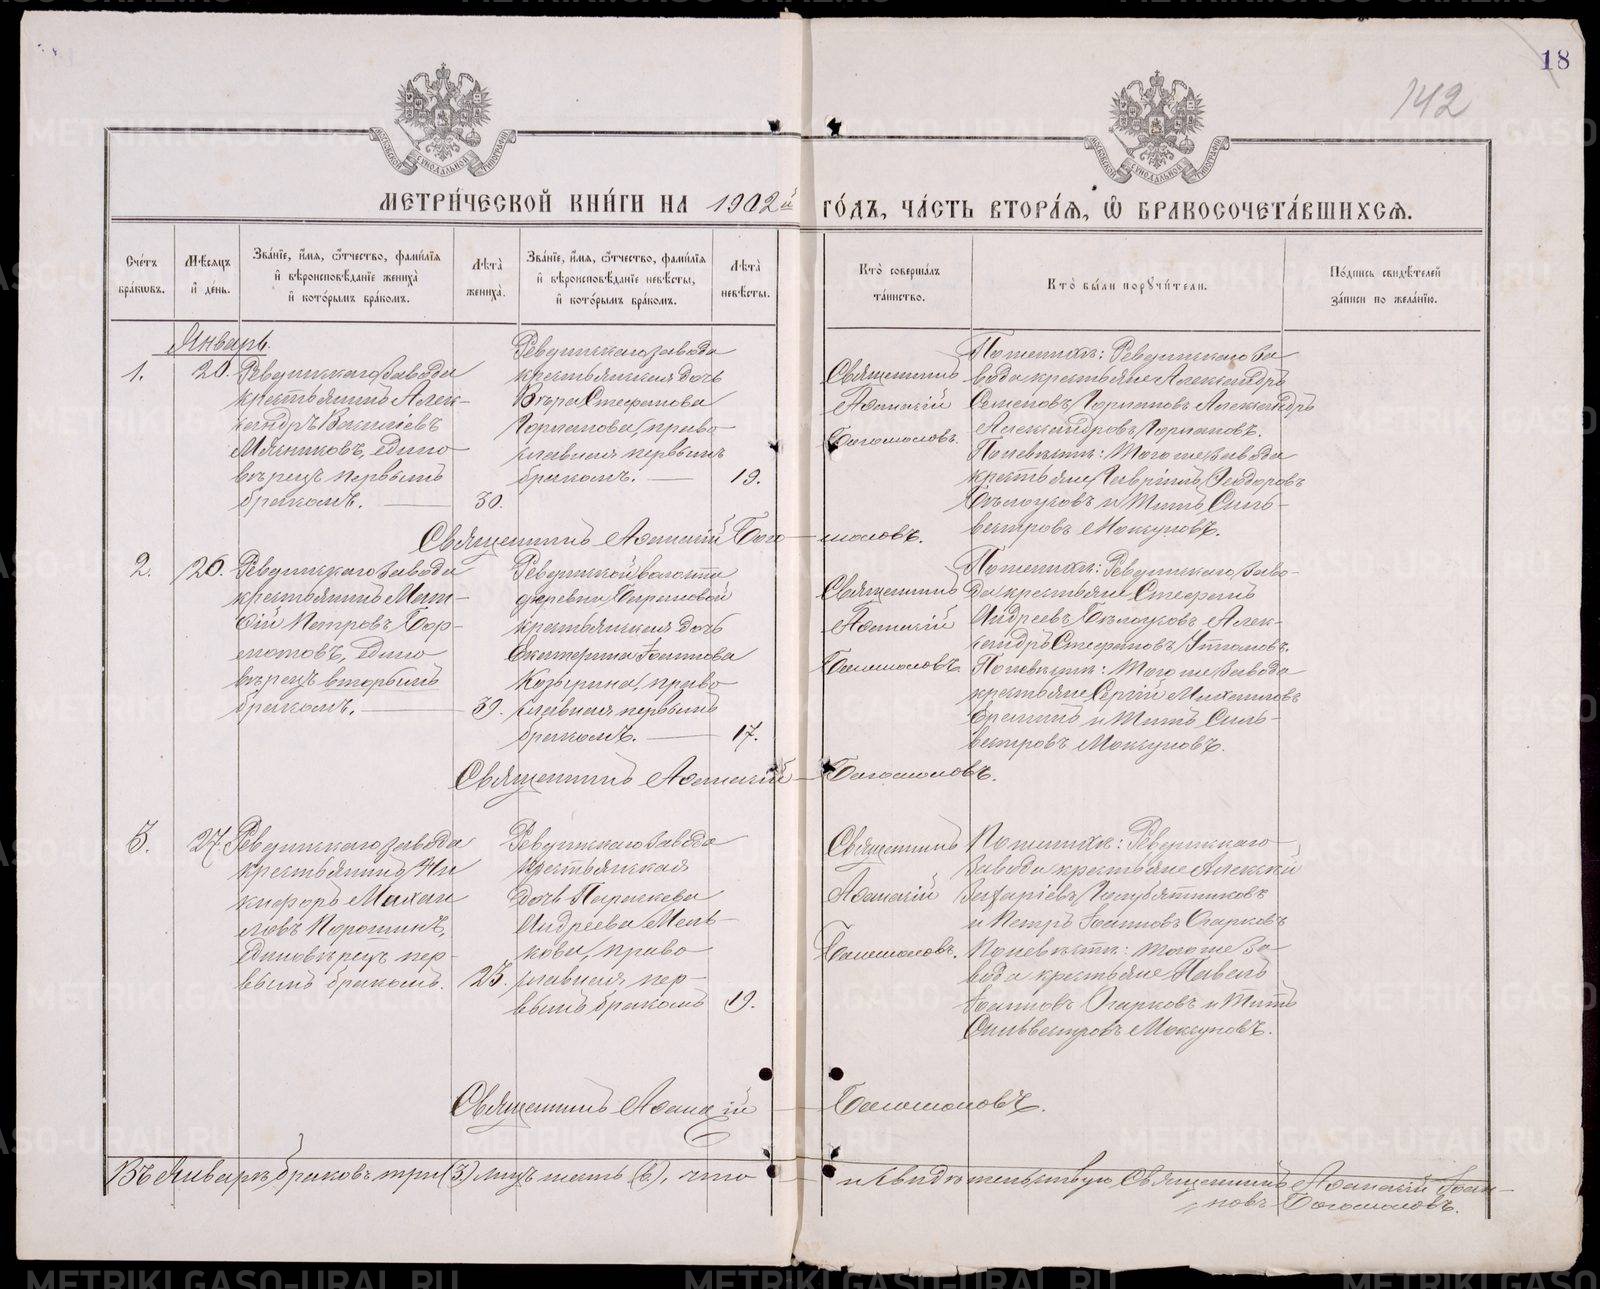 18
142
МОСКОВСКОЙ СѴНОДАЛЬНОЙ ТИПОГРАФІИ
МОСКОВСКОЙ СѴНОДАЛЬНОЙ ТИПОГРАФІИ
МЕТРИ́ЧЕСКОЙ КНИ́ГИ НА 1902й ГО́ДЪ, ЧА́СТЬ ВТОРА́Я, Ѡ БРАКОСОЧЕТА́ВШИХСЯ.
Сче́тъ бра́кѡвъ.
Мѣ́сяцъ и҆ де́нь.
Зва́нїе, и҆́мя, ѻ҆́тчество, фами́лїя и҆ вѣроисповѣ́данїе жениха̀ и҆ кото́рымъ бра́комъ.
Лѣта̀ жениха̀.
Зва́нїе, и҆́мя, ѻ҆́тчество, фами́лїя и҆ вѣроисповѣ́данїе невѣ́сты, и҆ кото́рымъ бра́комъ.
Лѣта̀ невѣ́сты.
Кто̀ соверша́лъ та́инство.
Кто̀ бы́ли порꙋчи́тели.
По́дпись свидѣ́телей за́писи по жела́нїю.
Январь.
1.
20.
Ревдинскаго завода
крестьянинъ Алек-
сандръ Василіевъ
Мясниковъ, едино
вѣрецъ первымъ
бракомъ.
30.
Ревдинскаго завода
крестьянская дочь
Вѣра Стефанова
Горланова, право
славная первымъ
бракомъ.
19.
Священникъ
Аѳанасій
Богомоловъ.
По женихѣ: Ревдинскаго за
вода крестьяне Александръ
Семеновъ Горлановъ Александръ
Александровъ Горлановъ.
По невѣстѣ: Того же завода
крестьяне Гавріилъ Ѳеодоровъ
Бѣлоусовъ и Титъ Силь-
вестровъ Мокрусовъ.
Священникъ Аѳанасій Бого-моловъ.
2.
20.
Ревдинскаго завода
крестьянинъ Мат-
ѳій Петровъ Бор-
мотовъ, едино
вѣрецъ вторымъ
бракомъ.
39.
Ревдинской волости
деревни Барановой
крестьянская дочь
Екатерина Іоаннова
Козырина, право
славная первымъ
бракомъ.
17.
Священникъ
Аѳанасій
Богомоловъ.
По женихѣ: Ревдинскаго заво-
да крестьяне Стефанъ
Андреевъ Бѣлоусовъ Алек-
сандръ Стефановъ
По невѣстѣ: Того же завода
крестьяне Сергій Михаиловъ
и Титъ Силь-
вестровъ Мокрусовъ.
Священникъ Аѳанасій Богомоловъ.
3.
27.
Ревдинскаго завода
крестьянинъ Ни
кифоръ Михаи
ловъ Порошинъ,
единовѣрецъ пер-
вымъ бракомъ.
23.
Ревдинскаго завода
крестьянская
дочь Параскева
Андреева Мель-
кова, право
славная, пер-
вымъ бракомъ
19.
Священникъ
Аѳанасій
Богомоловъ.
По женихѣ: Ревдинскаго
завода крестьяне Алексѣй
Захаріевъ Голубятниковъ
и Петръ Іоанновъ Огарковъ
По невѣстѣ: того же за-
вода крестьяне Павелъ
Іоанновъ Огарковъ и Титъ
Сильвестровъ Мокрусовъ.
Священникъ Аѳанасій Богомоловъ.
Въ Январѣ браковъ три (3) лицъ шесть (6), что и свидѣтельствую Священникъ Аѳанасій Іоан-
новъ Богомоловъ.
METRIKI.GASO-URAL.RU